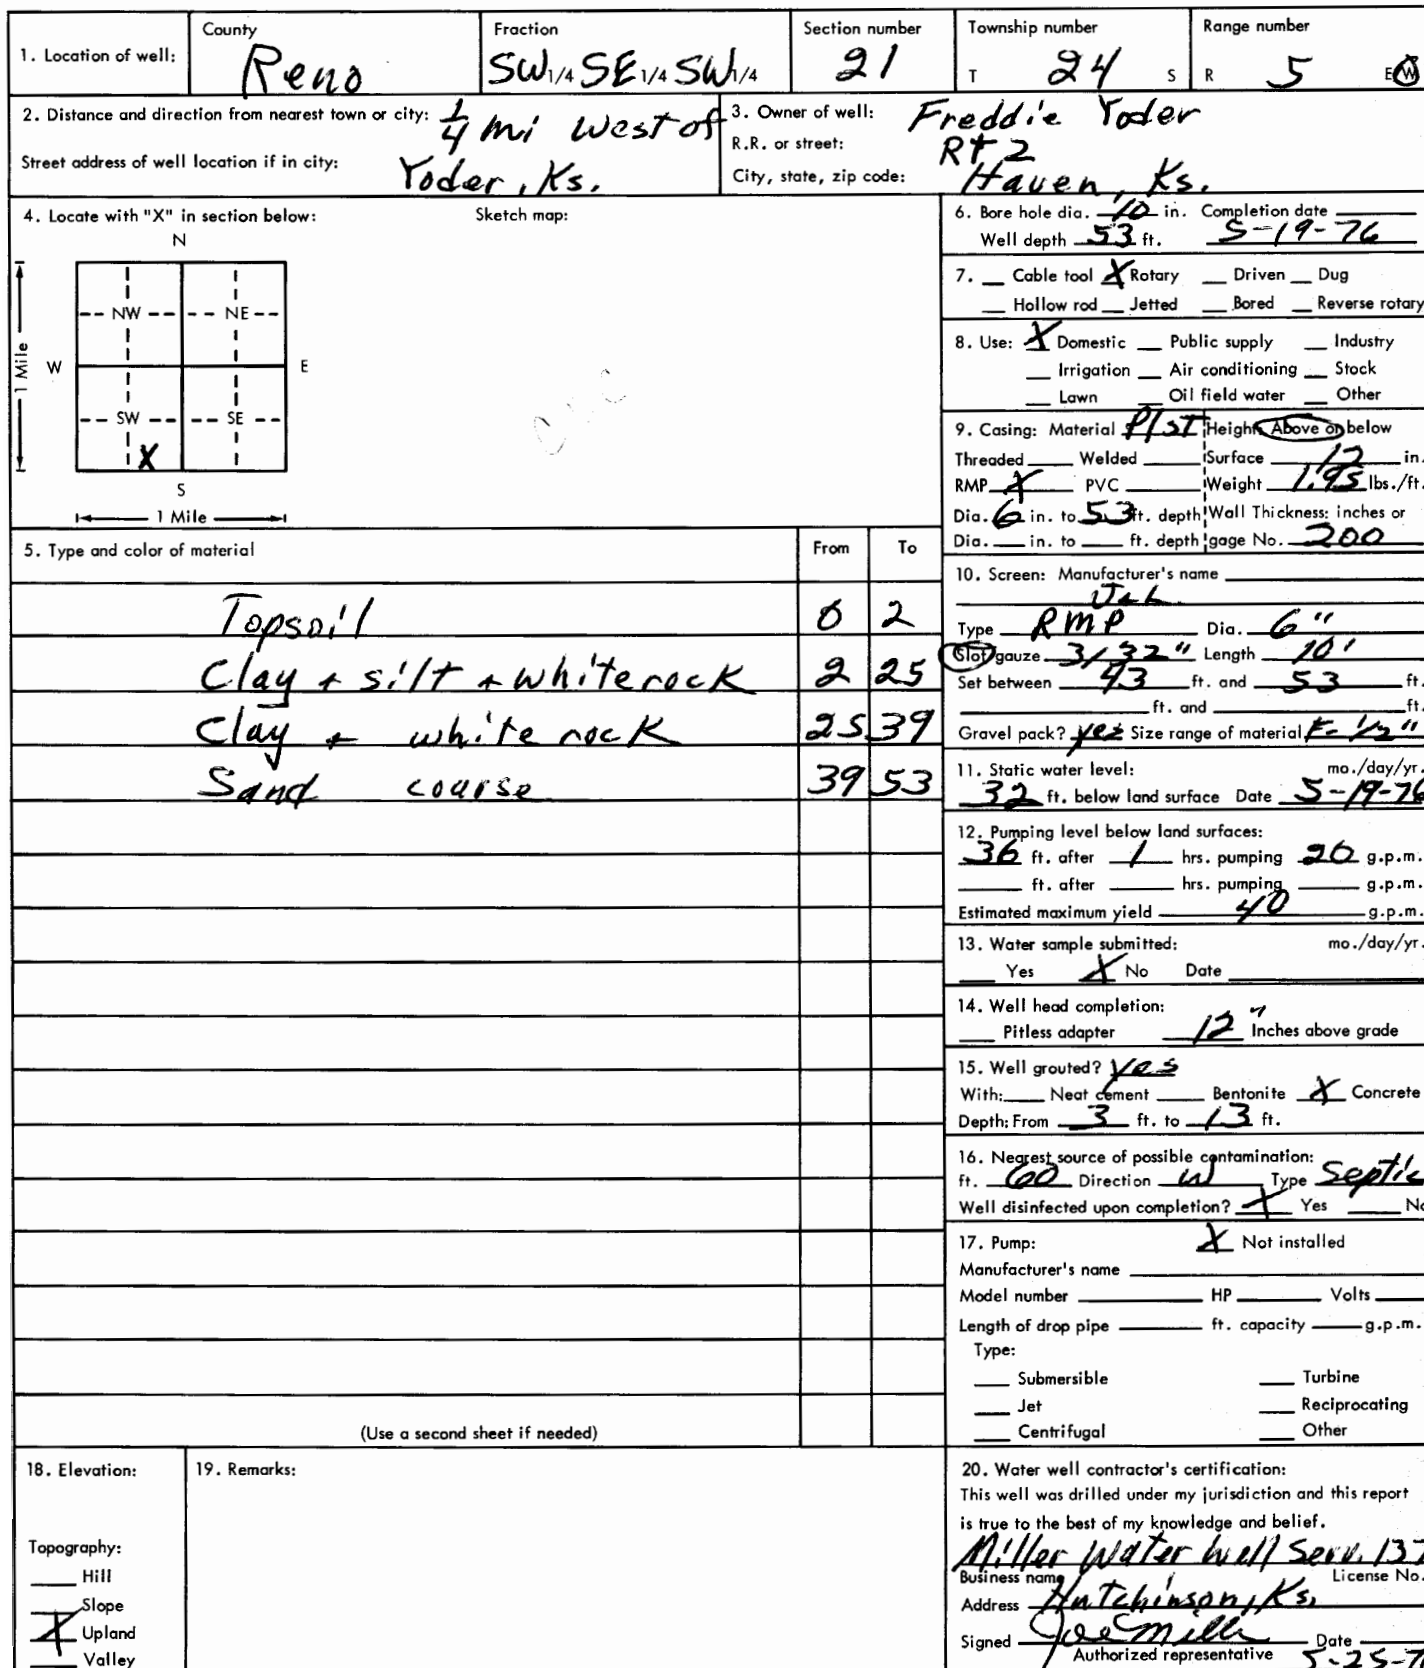 County Fraction Section number Township number Range number
1. Location of well: Reno SW 1/4 SE 1/4 SW 1/4 21 T 24 S R 5 E W
2. Distance and direction from nearest town or city: 1/4 mi West of
Street address of well location if in city: Yoder, Ks.
3. Owner of well: Freddie Yoder
R.R. or street: Rt 2
City, state, zip code: Haven, Ks.
4. Locate with "X" in section below: Sketch map:
N
NW NE
W E
1 Mile
SW SE
X
S
1 Mile
5. Type and color of material From To
Topsoil 0 2
Clay + silt + white rock 2 25
Clay + white rock 25 39
Sand coarse 39 53
(Use a second sheet if needed)
6. Bore hole dia. 10 in. Completion date
Well depth 53 ft. 5-19-76
7. Cable tool X Rotary Driven Dug
Hollow rod Jetted Bored Reverse rotary
8. Use: X Domestic Public supply Industry
Irrigation Air conditioning Stock
Lawn Oil field water Other
9. Casing: Material Plst Height: Above or below
Threaded Welded Surface 12 in.
RMP X PVC Weight 1.95 lbs./ft.
Dia. 6 in. to 53 ft. depth Wall Thickness: inches or
Dia. in. to ft. depth gage No. 200
10. Screen: Manufacturer's name
Type RMP Dia. 6"
Slot/gauze 3/32" Length 10'
Set between 43 ft. and 53 ft.
ft. and ft.
Gravel pack? yes Size range of material F-1/2"
11. Static water level: mo./day/yr.
32 ft. below land surface Date 5-19-76
12. Pumping level below land surfaces:
36 ft. after 1 hrs. pumping 20 g.p.m.
ft. after hrs. pumping g.p.m.
Estimated maximum yield 40 g.p.m.
13. Water sample submitted: mo./day/yr.
Yes X No Date
14. Well head completion:
Pitless adapter 12" Inches above grade
15. Well grouted? yes
With: Neat cement Bentonite X Concrete
Depth: From 3 ft. to 13 ft.
16. Nearest source of possible contamination:
ft. 60 Direction W Type Septic
Well disinfected upon completion? X Yes No
17. Pump: X Not installed
Manufacturer's name
Model number HP Volts
Length of drop pipe ft. capacity g.p.m.
Type:
Submersible Turbine
Jet Reciprocating
Centrifugal Other
18. Elevation:
Topography:
Hill
Slope
X Upland
Valley
19. Remarks:
20. Water well contractor's certification:
This well was drilled under my jurisdiction and this report
is true to the best of my knowledge and belief.
Miller Water Well Serv. 137
Business name License No.
Address Hutchinson, Ks.
Signed Joe Miller Date 5-25-7
Authorized representative